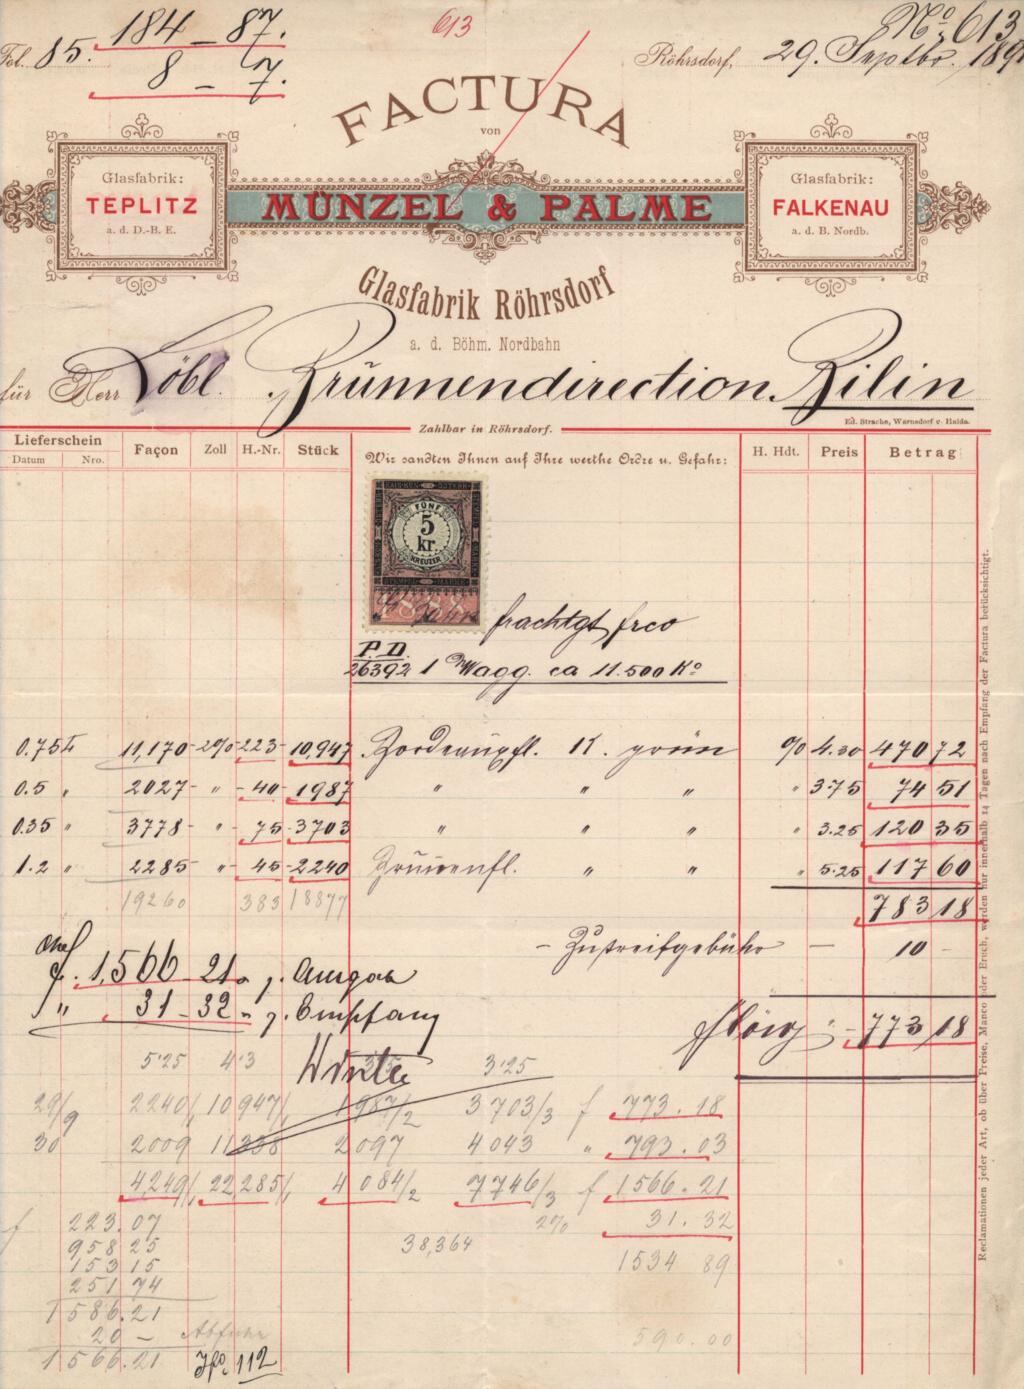 Fol. 85. 184 – 87.
8 – 7.
613
No. 613
Röhrsdorf, 29. Septbr. 189
FACTURA
von
MÜNZEL & PALME
Glasfabrik:
TEPLITZ
a. d. D.-B. E.
Glasfabrik:
FALKENAU
a. d. B. Nordb.
Glasfabrik Röhrsdorf
a. d. Böhm. Nordbahn
für Herr Löbl. Brunnendirection Bilin
Ed. Strache, Warnsdorf u. Haida.
Zahlbar in Röhrsdorf.
Lieferschein Datum Nro. Façon Zoll H.-Nr. Stück Wir sandten Ihnen auf Ihre werthe Ordre u. Gefahr: H. Hdt. Preis Betrag
FÜNF
5
kr.
KREUZER
STEMPEL MARKE
1888
frachtgt frco
P. D.
26392 1 Wagg. ca 11.500 Ko
0.75 L 11,170 – 2% 223 – 10,947 Bordeauxfl. K. grün % 4.30 470 72
0.5 " 2027 – " – 40 – 1987 " " " " 3.75 74 51
0.35 " 3778 – " – 75 – 3703 " " " " 3.25 120 35
1.2 " 2285 – " 45 – 2240 Brunnenfl. " " " 5.25 117 60
19260 383 18877 783 18
– Zustreifgebühr – 10 –
f. 1,566 – 21 p. Ausgab
" 31 – 32 – p. Empfang
773 18
5.25 4.3 3.75 3.25
Winter
29/9 2240/ 10947/ 1987/2 3703/3 f 773.18
30 2009 11338 2097 4043 " 793.03
4,249/ 22,285/ 4084/2 7746/3 f 1566.21
2% 31.32
38,364
1534 89
f 223.07
958 25
153 15
251 74
1586.21
20 – Abfuhr
1566.21 112
590.00
Reclamationen jeder Art, ob über Preise, Manco oder Bruch, werden nur innerhalb 14 Tagen nach Empfang der Factura berücksichtigt.